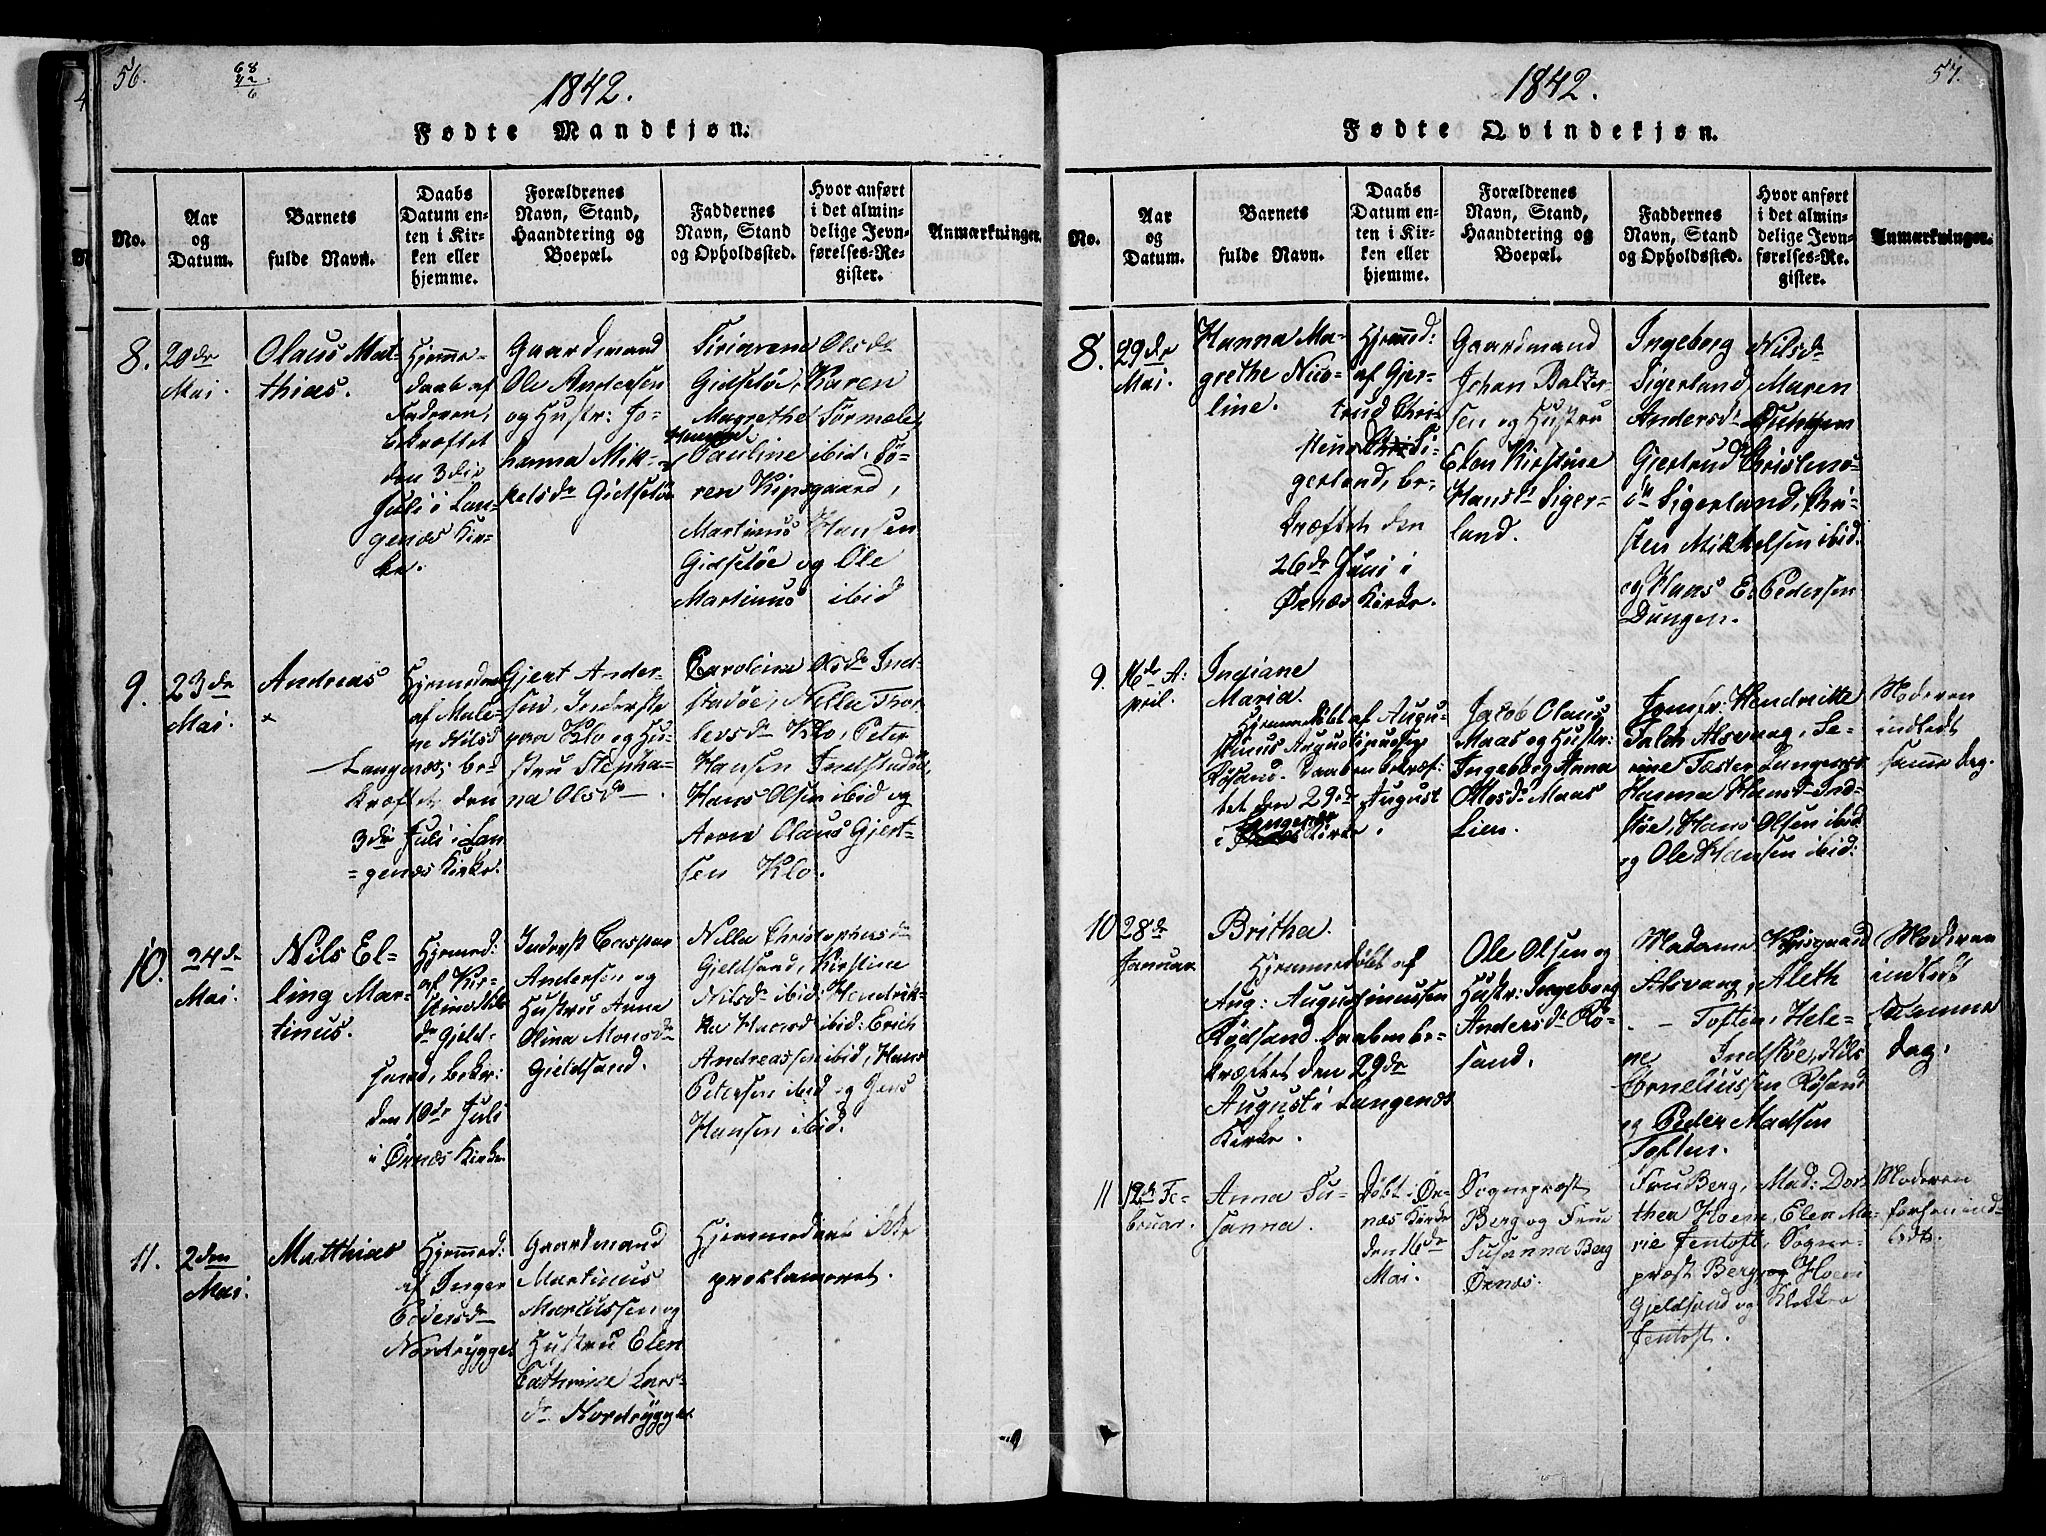 56.
68
42
6
1842.
Fødte Mandkjøn.
No.
Aar
og
Datum.
Barnets
fulde Navn.
Daabs
Datum en-
ten i Kir-
ken eller
hjemme.
Forældrenes
Navn, Stand,
Haandtering og
Boepæl.
Faddernes
Navn, Stand
og Opholdssted.
Hvor anført
i det almin-
delige Jevn-
førelses-Re-
gister.
Anmærkninger.
8.
20de
Mai.
Olaus Mat-
thias.
Hjemme-
daab af
Faderen,
bekræftet
den 3die
Juli i Lan-
genæs Kir-
ke.
Gaardmand
Ole Andersen
og Hustr: Jo-
hanna Mik-
kelsdr Gidsløe
Olsdr
Gidsløe, Karen
Magrethe
Pauline ibid: Sö-
ren Kipsgaard,
Martinus Hansen
Gidsløe og Ole
Martinus ibid
9.
23de
Mai.
Andreas
Hjemmed
af Male-
ne Nilsd
Langenæs, be-
kræftet den
3die Juli i Lan
=genæs Kirke.
Gjert Ander-
sen, Inderste
paa Klo og Hu-
stru Stepha-
na Olsdr.
Carolina Olsdr Ind-
stadöe, Nella Thor
levsdr Klo, Peter
Hansen Indstadöe,
Hans Olsen ibid og
Aron Olaus Gjert-
sen Klo.
10.
24de
Mai.
Nils El-
ling Mar-
tinus.
Hjemmed:
af Kir-
stine
dr Gjeld-
sand, bekr:
den 10de Juli
i Ørnæs Kirke
Inderst Caspar
Andersen og
Hustru Anna
Olina Monsdr
Gjeldsand.
Nella Christophersdr
Gjeldsand, Kirstine
Nilsdr ibid: Hendrik-
ka Hansd ibid: Erich
Andreassen ibid, Hans
Petersen ibid og Jens
Hansen ibid.
11.
2den
Mai.
Matthias
Hjemmed:
af Inger
Pedersdr
Nordrygget
Gaardmand
Martinus
Mareliussen og
Hustru Elen
Cathrine Lars-
dr Nordrygget
Hjemmedøbt ikke
proklameret.
57.
1842.
Fødte Qvindekjøn.
No.
Aar
og
Datum.
Barnets
fulde Navn.
Daabs
Datum en-
ten i Kir-
ken eller
hjemme.
Forældrenes
Navn, Stand,
Haandtering og
Boepæl.
Faddernes
Navn, Stand
og Opholdssted.
Hvor anført
i det almin-
delige Jevn-
førelses-Re-
gister.
Anmærkninger.
8.
29de
Mai.
Hanna Ma-
grethe Nico-
line.
Hjemmed:
af Gjer-
trud Chri
stensd Si-
gerland, be-
kræftet den
26de Juni i
Ørnæs Kirke.
Gaardmand
Johan Balzer-
sen og Hustru
Elen Kirstine
Hansdr Siger-
land.
Ingeborg Nilsdr
Sigerland, Maren
Andersdr
Gjertrud Christens-
dr Sigerland, Chri-
sten Mikkelsen ibid.
og Hans E. Pedersen
Dungen.
9.
16de A:
pril.
Ingiane
Maria.
Hjemmedöbt af Augu-
stinus Augustinusen
Rösand. Daaben bekræf:
tet den 29de August
i Langenæs Kirke.
Jacob Olaus
Maas og Hustr:
Ingeborg Anna
Olesdr Maas
Lien.
Jomfr: Hendrikke
Falch Alsvaag, Se-
rine Toften Langenæs
Hanna Hansd Ind-
stöe, Hans Olsen ibid
og Ole Hansen ibid:
Moderen
indledt
samme dag.
10
28de
Januar
Britha.
Hjemmedøbt af
Aug: Augustinussen
Rödsand. Daaben be-
kræftet den 29de
August i Langenæs
Kirke.
Ole Olsen og
Hustr: Ingeborg
Andersdr Rö-
sand.
Madame Kipsgaard
Alsvaag, Aleth
Toften, Hele-
ne Indstöe, Nils
Corneliussen Rösand
og Peder Madsen
Toften.
Moderen
indledt
samme
dag.
11
12te Fe-
bruar.
Anna Su-
sanna.
Døbt i Ør-
næs Kirke
den 16de
Mai.
Sognepræst
Berg og Frue
Susanna Berg
Ørnæs.
Fru Berg, Mad: Doro
thea Hoem, Elen Ma-
rie Jentoft, Sogne-
præst Berg, og Hoem
Gjeldsand og Klokker
Jentoft.
Moderen
forhen ind-
ledt.